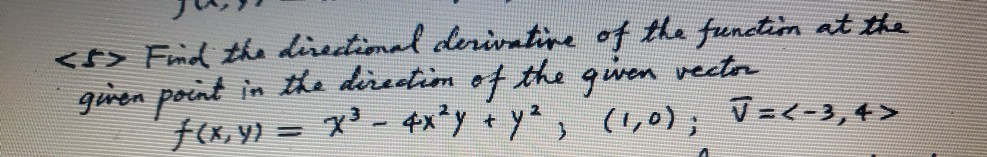 <5> Find the directional derivative of the function at the
given point in the direction of the given vector
f(x,y) = x³ - 4x²y + y² , (1,0) ; v̅ = <-3, 4>